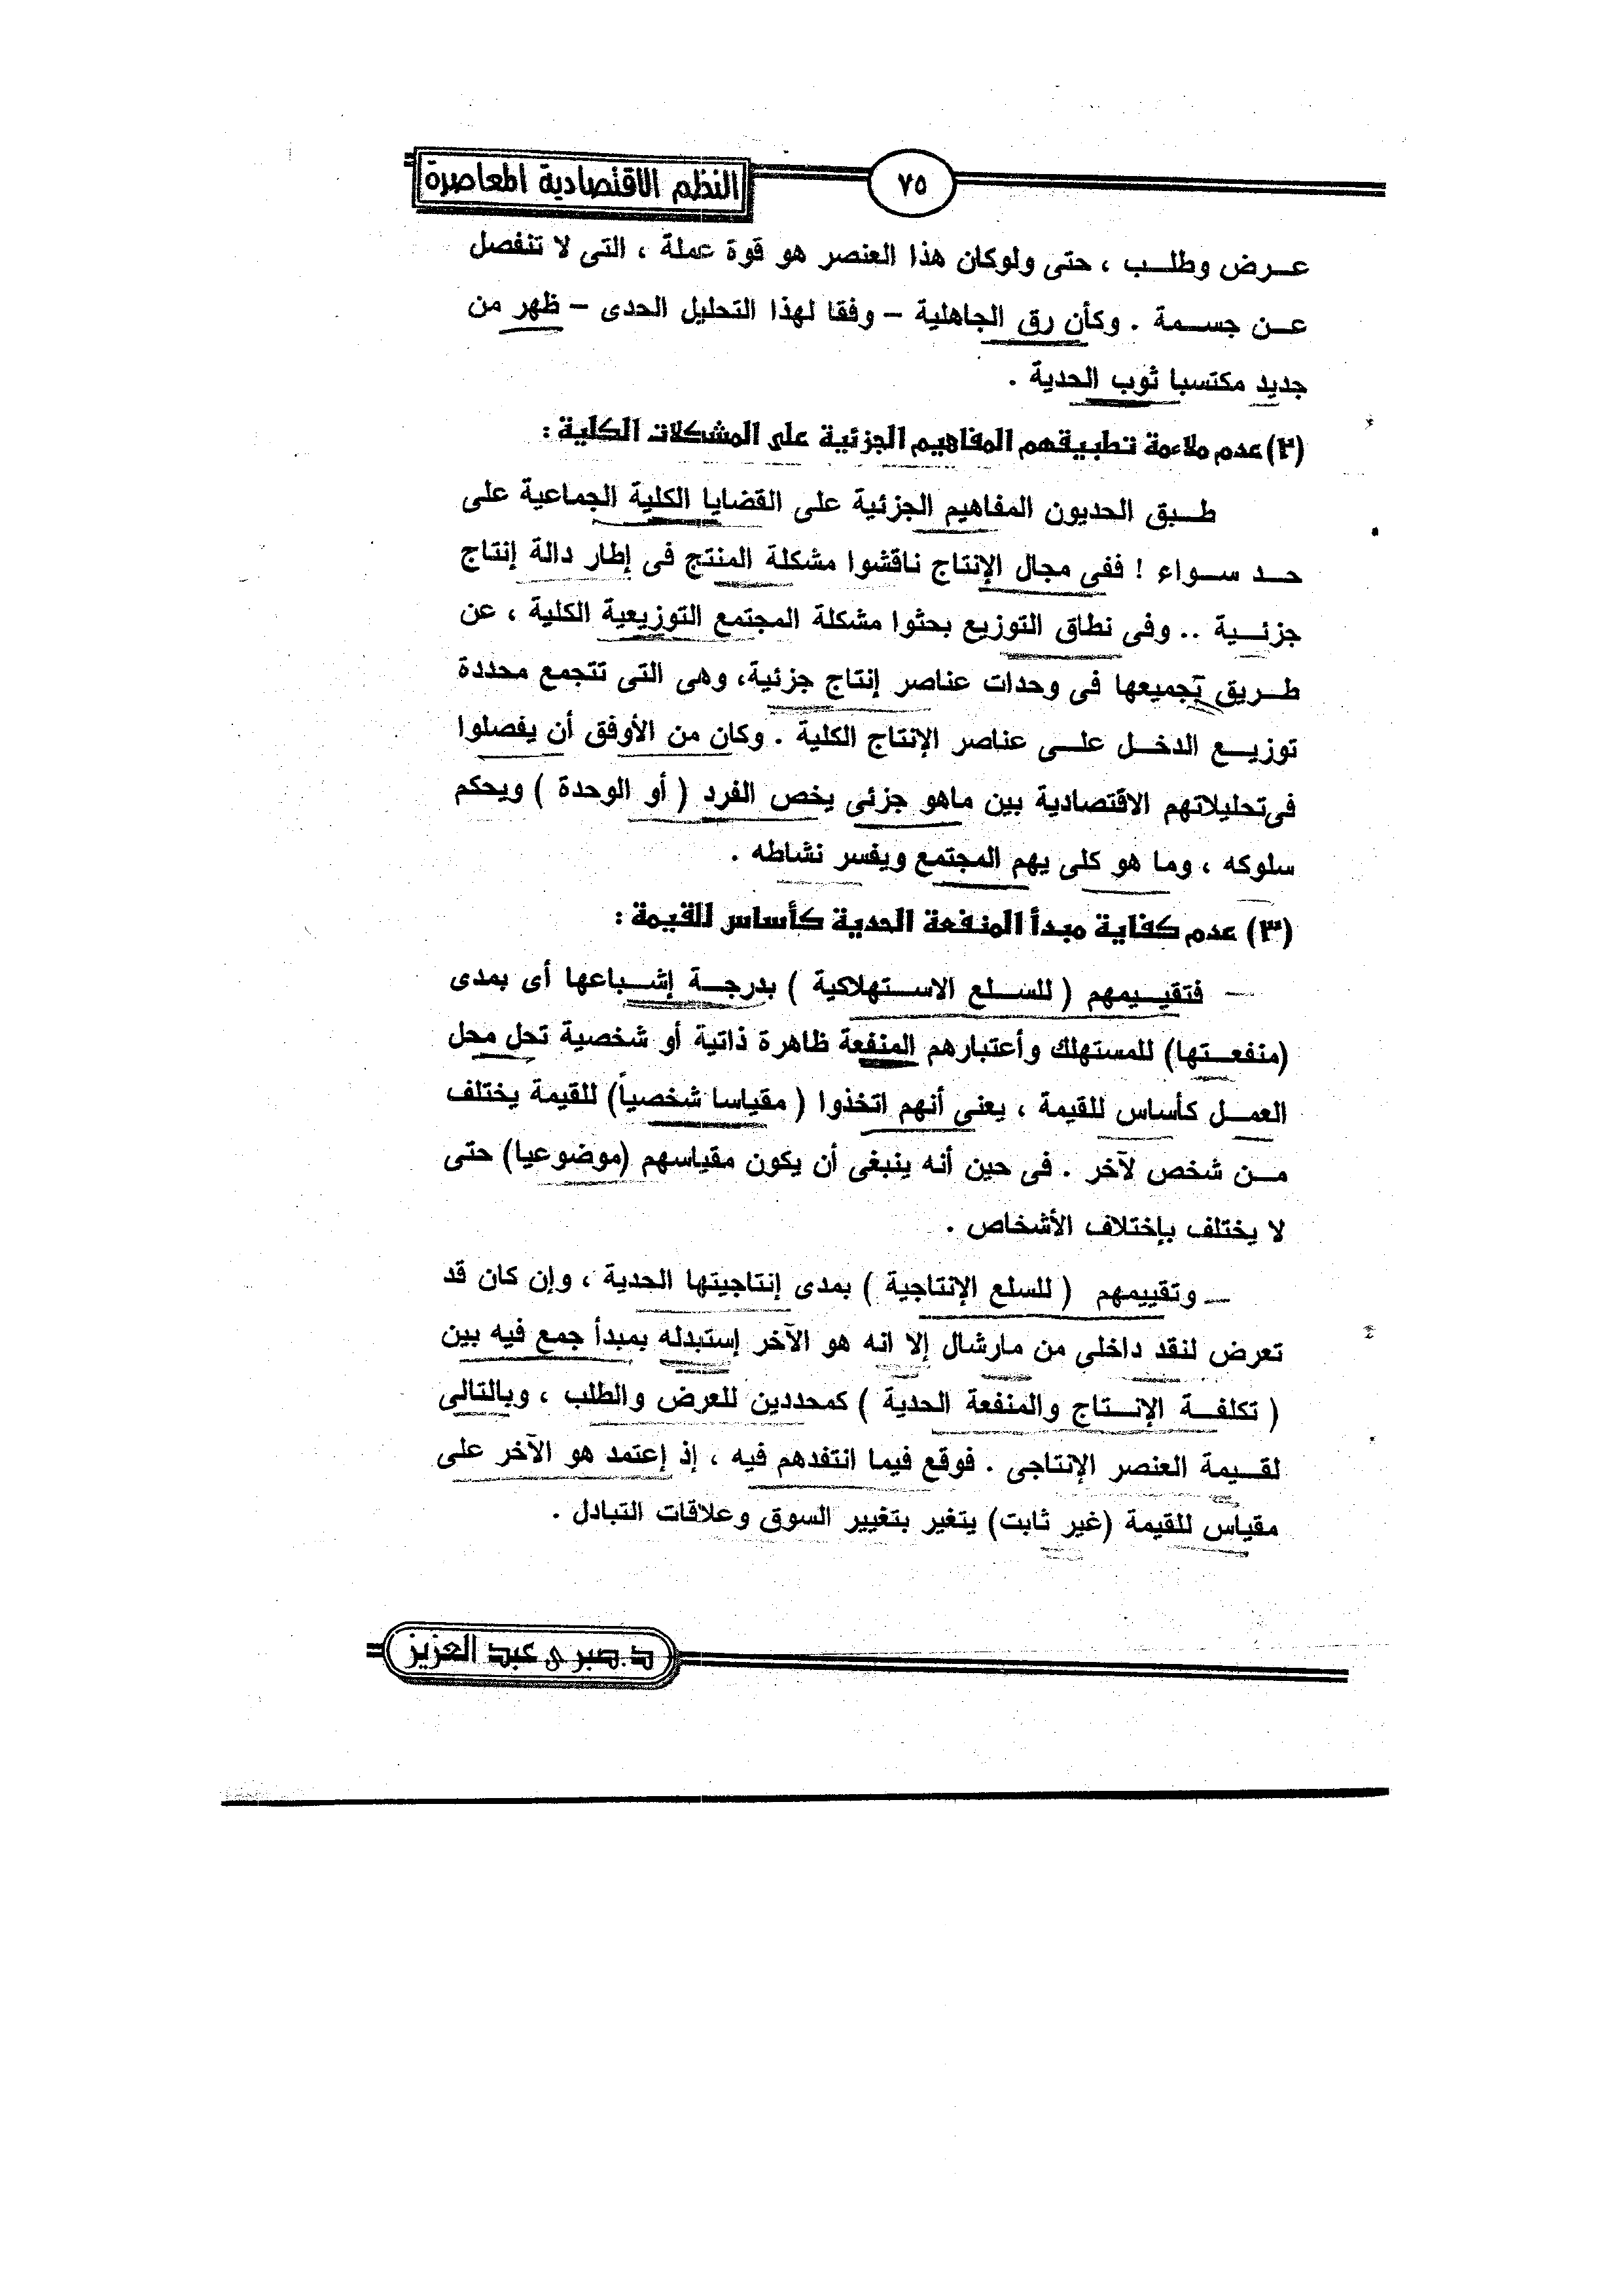 النظم الاقتصادية المعاصرة
٧٥
عرض وطلب ، حتى ولوكان هذا العنصر هو قوة عملة ، التى لا تنفصل
عن جسمة . وكأن رق الجاهلية – وفقا لهذا التحليل الحدى – ظهر من
جديد مكتسبا ثوب الحدية .
(٢) عدم ملاءمة تطبيقهم المفاهيم الجزئية على المشكلات الكلية :
طبق الحديون المفاهيم الجزئية على القضايا الكلية الجماعية على
حد سواء ! ففى مجال الإنتاج ناقشوا مشكلة المنتج فى إطار دالة إنتاج
جزئية .. وفى نطاق التوزيع بحثوا مشكلة المجتمع التوزيعية الكلية ، عن
طريق تجميعها فى وحدات عناصر إنتاج جزئية، وهى التى تتجمع محددة
توزيع الدخل على عناصر الإنتاج الكلية . وكان من الأوفق أن يفصلوا
فى تحليلاتهم الاقتصادية بين ماهو جزئى يخص الفرد ( أو الوحدة ) ويحكم
سلوكه ، وما هو كلى يهم المجتمع ويفسر نشاطه .
(٣) عدم كفاية مبدأ المنفعة الحدية كأساس للقيمة :
— فتقييمهم ( للسلع الاستهلاكية ) بدرجة إشباعها أى بمدى
(منفعتها) للمستهلك وأعتبارهم المنفعة ظاهرة ذاتية أو شخصية تحل محل
العمل كأساس للقيمة ، يعنى أنهم اتخذوا ( مقياسا شخصياً) للقيمة يختلف
من شخص لآخر . فى حين أنه ينبغى أن يكون مقياسهم (موضوعيا) حتى
لا يختلف بإختلاف الأشخاص .
— وتقييمهم ( للسلع الإنتاجية ) بمدى إنتاجيتها الحدية ، وإن كان قد
تعرض لنقد داخلى من مارشال إلا انه هو الآخر إستبدله بمبدأ جمع فيه بين
( تكلفة الإنتاج والمنفعة الحدية ) كمحددين للعرض والطلب ، وبالتالى
لقيمة العنصر الإنتاجى . فوقع فيما انتفدهم فيه ، إذ إعتمد هو الآخر على
مقياس للقيمة (غير ثابت) يتغير بتغيير السوق وعلاقات التبادل .
د.صبرى عبد العزيز